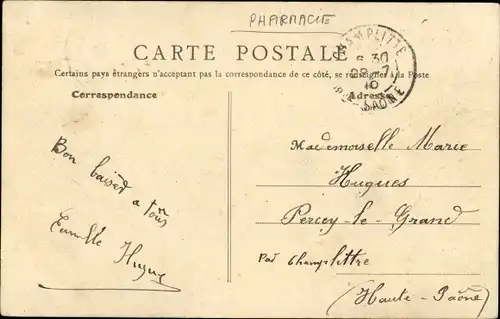 PHARMACIE
CARTE POSTALE
Certains pays étrangers n'acceptant pas la correspondance de ce côté, se renseigner à la Poste
Correspondance
Adresse
CHAMPLITTE
6 30
10
SAÔNE
Bon baiser a tous
Famille Hugues
Mademoiselle Marie
Hugues
Percey-le-Grand
Par Champlitte
(Haute-Saône)